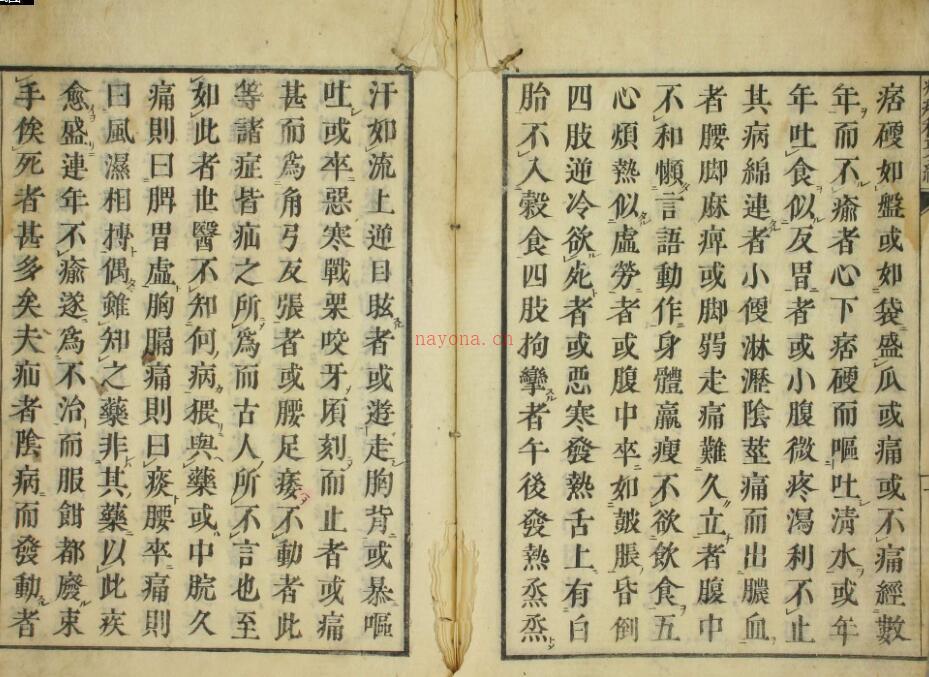 痞硬如盤或如袋盛瓜或痛或不痛經數
年而不瘉者心下痞硬而嘔吐清水或年
年吐食似反胃者或小腹微疼瀉利不止
其病綿連者小便淋瀝陰莖痛而出膿血
者腰脚麻痺或脚弱走痛難久立者腹中
不和懶言語動作身體羸瘦不欲飲食五
心煩熱似虛勞者或腹中卒如皷脹昏倒
四肢逆冷欲死者或惡寒發熱舌上有白
胎不入穀食四肢拘攣者午後發熱烝烝
汗如流上逆目眩者或遊走胸背或暴嘔
吐或卒惡寒戰栗咬牙頃刻而止者或痛
甚而為角弓反張者或腰足痿不動者此
等諸症皆疝之所為而古人所不言也至
如此者世醫不知何病猥與藥或中脘久
痛則曰脾胃虛胸膈痛則曰痰腰卒痛則
曰風濕相摶偶雖知之藥非其藥以此疾
愈盛連年不瘉遂為不治而服餌都廢束
手俟死者甚多矣夫疝者陰病而發動者
nayona.cn